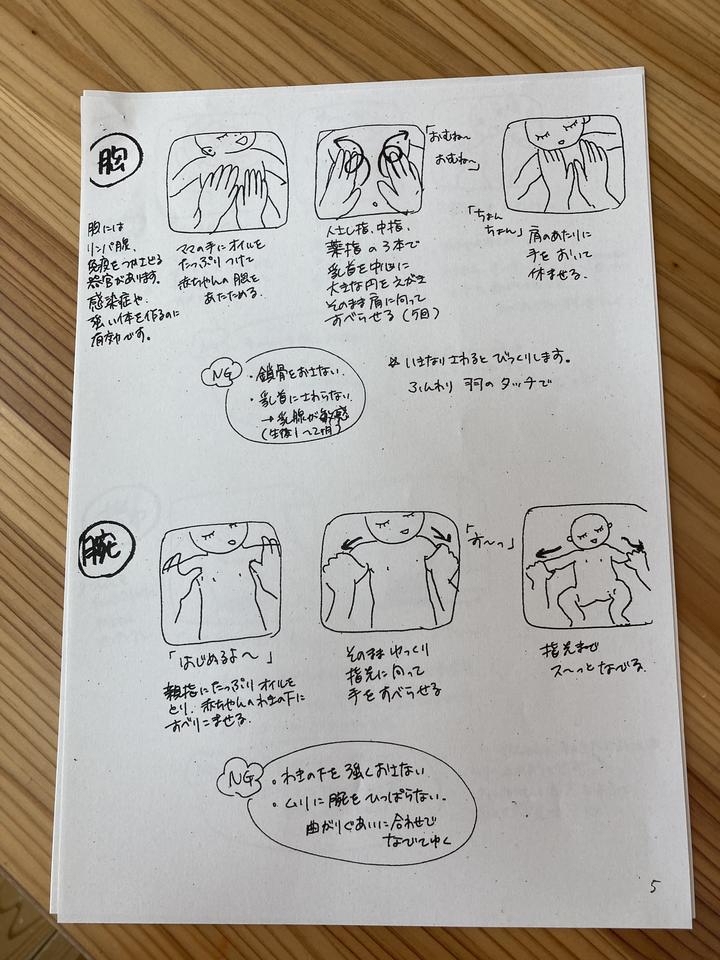 胸
胸には
リンパ腺、
免疫をつかさどる
器官があります。
感染症や、
強い体を作るのに
有効です。
ママの手にオイルを
たっぷりつけて
赤ちゃんの胸を
あたためる.
「おむね〜
おむね〜」
人さし指、中指、
薬指の3本で
乳首を中心に
大きな円をえがき
そのまま肩に向って
すべらせる(5回)
「ちょん
ちょん」
肩のあたりに
手をおいて
休ませる.
NG
・鎖骨をおさない.
・乳首にさわらない.
→乳腺が敏感
(生後1〜2ヶ月)
※いきなりさわるとびっくりします。
ふんわり 羽のタッチで
腕
「はじめるよ〜」
親指にたっぷりオイルを
とり、赤ちゃんのわきの下に
すべりこませる.
「す〜っ」
そのままゆっくり
指先に向って
手をすべらせる
指先まで
ス〜っとなでる.
NG
・わきの下を強くおさない.
・ムリに腕をひっぱらない.
曲がりぐあいに合わせて
なでてゆく
5